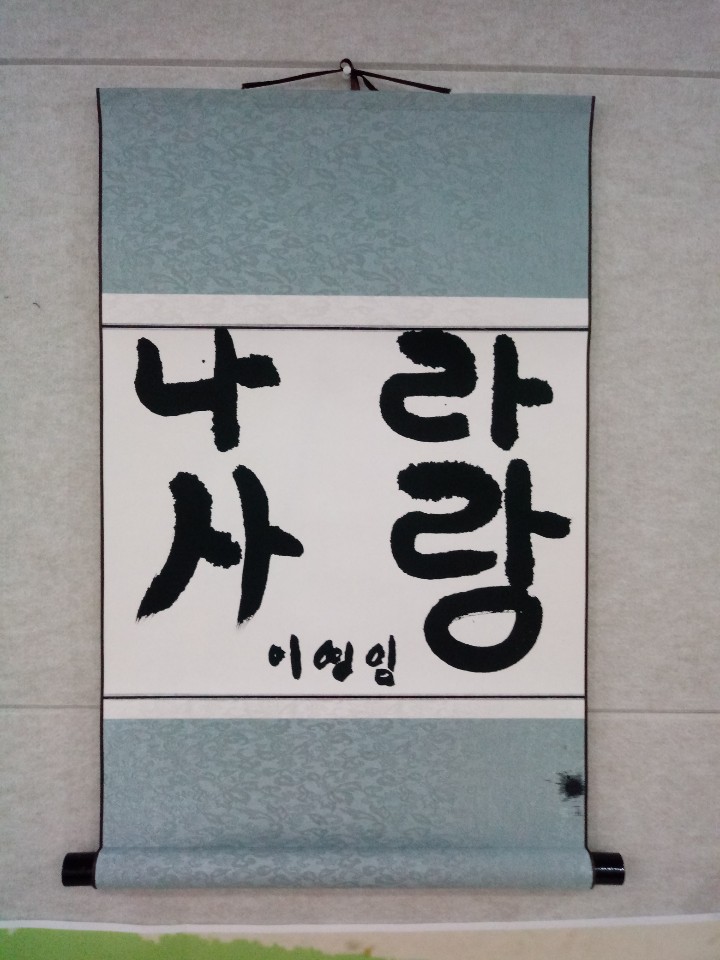 나라
사랑
이영임